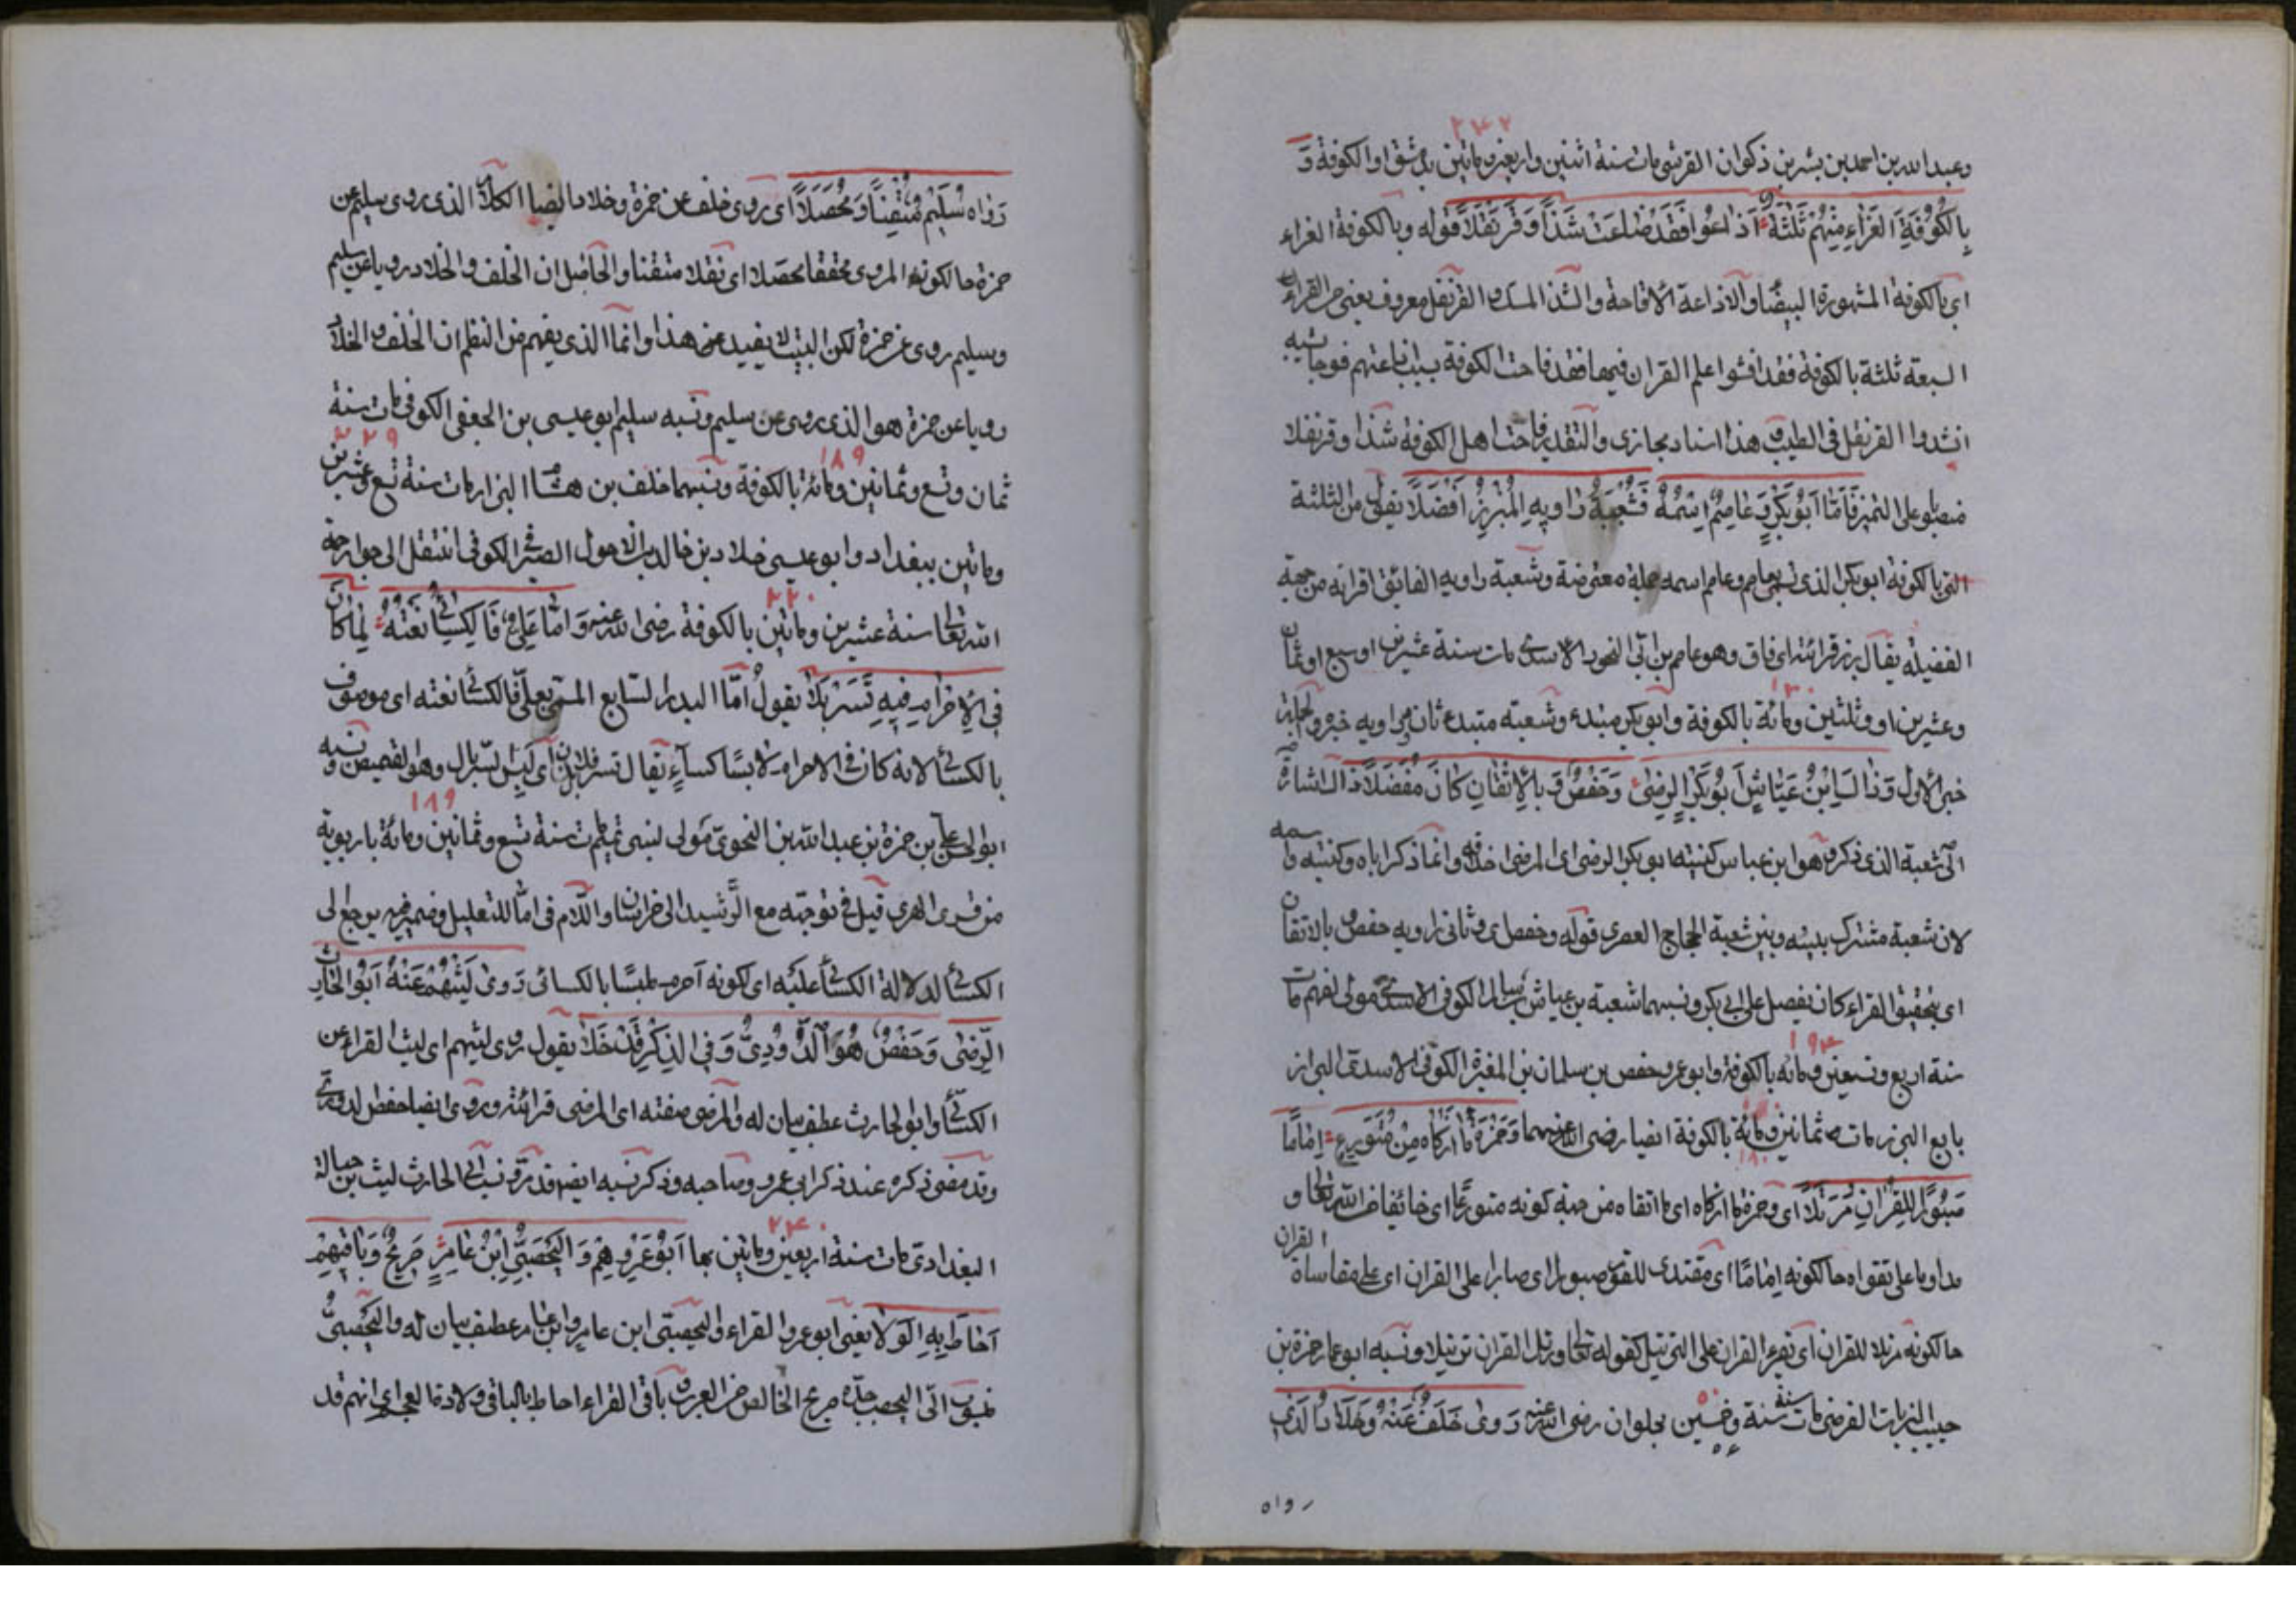 ٢٤٢
وعبد الله بن احمد بن بشر بن ذكوان القرشى مات سنة اثنين واربعين وماتين بدمشق او الكوفة وَ
بِالْكُوفَةِ الْغَرَّاءِ مِنْهُمْ ثَلٰثَةٌ اَذَاعُوا فَقَدْ ضَاعَتْ شَذًا وَقَرَنْفُلًا قوله وبالكوفة الغراء
اى بالكوفة المشهورة البيضا والاذاعة الافاحة والشذ المسك والقرنفل معروف يعنى من القراء
السبعة ثلثة بالكوفة فقد افشوا علم القران فيها فقد فاحت الكوفة بسبب
القرنفل فى الطيب هذا اسناد مجازى والتقدير فاحت اهل الكوفة شذا وقرنفلا
على التميز فَاَمَّا اَبُو بَكْرٍ وَعَاصِمٌ اِسْمُهُ فَشُعْبَةُ رَاوِيهِ الْمُبْرِزُ اَفْضَلَا يقول من الثلثة
التى بالكوفة ابو بكر الذى وعاصم اسمه جملة معترضة وشعبة راويه الفائق اقرانه من جهة
الفضيلة يقال برز قرانه اى فاق وهو عاصم بن ابى النجود الاسدى مات سنة عشرين او سبع او ثمان
١٣٠
وعشرين او وثلثين ومائة بالكوفة وابو بكر مبتدء وشعبة مبتدء ثان وراويه خبره والجملة
خبر الاول وَذَاكَ ابْنُ عَيَّاشٍ اَبُو بَكْرٍ الرِّضٰى وَحَفْصٌ وَبِالْاِتْقَانِ كَانَ مُفَضَّلًا ذاك اشارة
الى شعبة الذى ذكر وهو ابن عياس كنيته ابو بكر الرضى اى المرضى وانما ذكر اباه وكنيته واسمه
لان شعبة مشترك بينه وبين شعبة الحجاج قوله وحفص اى وثانى راويه حفص بالاتقان
اى بتحقيق القراء كان يفضل على ابى بكر ونسبهما شعبة بن عياش بن سالم الكوفى الاسدى مولى لهم مات
١٩٤
سنة اربع وتسعين ومائة بالكوفة وابو عمرو حفص بن سلمان بن المغيرة الكوفى الاسدى البزاز
بايع البز مات ثمانين ومائة بالكوفة ايضا رضى الله عنهما وَحَمْزَةُ مَا اَزْكَاهُ مِنْ مُتَوَرِّعٍ اِمَامًا
١٨٠
صَبُورًا لِلْقُرْانِ مُرَتِّلًا اى وحمزة ما ازكاه اى ما اتقاه من جهة كونه متورعا اى خائفا من الله تعالى و
مداوما على تقواه حالكونه اِمَامًا اى مقتدى للقوم صبورا اى صابرا على القران اى على مقاساة القران
حالكونه مرتلا للقران اى يقرء القران على الترتيل كقوله تعالى ورتل القران ترتيلا ونسبه ابو عمار حمزة بن
حبيب الزيات الفرضى مات سنة ستة وخمسين بحلوان رضى الله عنه رَوٰى خَلَفٌ عَنْهُ وَخَلَّادٌ الَّذِى
رواه
رَوَاهُ سُلَيْمٌ مُتْقِنًا وَمُحَصَّلًا اى روى خلف عن حمزة وخلاد ايضا الكلام الذى روى سليم عن
حمزة حالكونه المروى محققا محصلا اى نقلا متقنا والحاصل ان الخلف والخلاد رويا عن سليم
وسليم روى عن حمزة لكن البيت لا يفيد عن هذا وانما الذى يفهم من النظم ان الخلف والخلاد
رويا عن حمزة هو الذى روى عن سليم ونسبه سليم ابو عيسى بن الحنفى الكوفى مات سنة
١٨٩ ٢٢٩
ثمان وتسع وثمانين ومائة بالكوفة ونسبهما خلف بن هشام البزار مات سنة تسع وعشرين
وماتين ببغداد وابو عيسى خلاد بن خالد الاحول الصير الكوفى انتقل الى جوار رحمة
٢٢٠
الله تعالى سنة عشرين وماتين بالكوفة رضى الله عنه وَاَمَّا عَلِىٌّ فَالْكِسَائِىُّ نَعْتُهُ لِمَا كَانَ
فِى الْاِحْرَامِ فِيهِ تَسَرْبَلَا يقول اما البدر السابع المسمى بعلى فالكسائى نعته اى موصوف
بالكسائى لانه كان فى الاحرام لابسا كساء يقال تسربل فلان اى لبس السربال وهو القميص ونسبه
١٨٩
ابو الحسن على بن حمزة بن عبد الله بن النحوى مولى لبنى تميم مات سنة تسع وثمانين ومائة باربوية
من قرى الهرى قيل فى توجهه مع الرشيد الى خراسان واللام فى لما للتعليل وضمير فيه يرجع الى
الكسائى لدلالة الكسائى عليه اى لكونه احرم ملبسا بالكسائى رَوٰى لَيْثُهُمْ عَنْهُ اَبُو الْحَارِثِ
الرِّضٰى وَحَفْصٌ هُوَ الدُّورِىُّ وَفِى الذِّكْرِ قَدْ خَلَا يقول روى ليثهم اى ليث القراء عن
الكسائى وابو الحارث عطف بيان له والمرضى صفته اى المرضى قرائته وروى ايضا حفص الدورى
وقد مضى ذكره عند ذكر ابى عمرو وصاحبه وذكر نسبه ايضا قد مر ونسب ابى الحارث ليث بن
٢٤٠
البغدادى مات سنة اربعين وماتين بها اَبُو عَمْرِهِمْ وَالْيَحْصَبِىُّ ابْنُ عَامِرٍ صَرِيحٌ وَبَاقِيهِمْ
اَحَاطَ بِهِ الْوَلَا يعنى ابو عمرو القراء واليحصبى ابن عامر وابن عامر عطف بيان له واليحصبى
منسوب الى اليحصب جده صريح الخالص من العرب باقى القراء احاط بالباقى ولادة العجم اى انهم قد